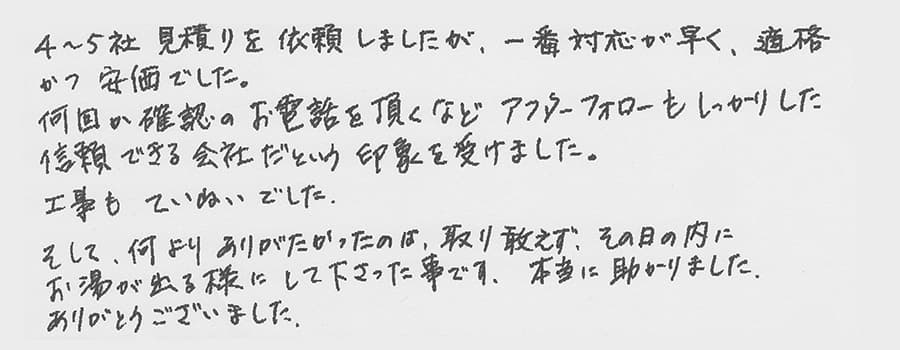 4〜5社 見積りを 依頼しましたが、一番対応が早く、適格
かつ 安価でした。
何回か確認のお電話を頂くなど アフターフォローもしっかりした
信頼できる会社だという 印象を受けました。
工事も ていねいでした.
そして、何より ありがたかったのは、取り敢えず、その日の内に
お湯が出る様にして下さった事です. 本当に助かりました.
ありがとうございました.